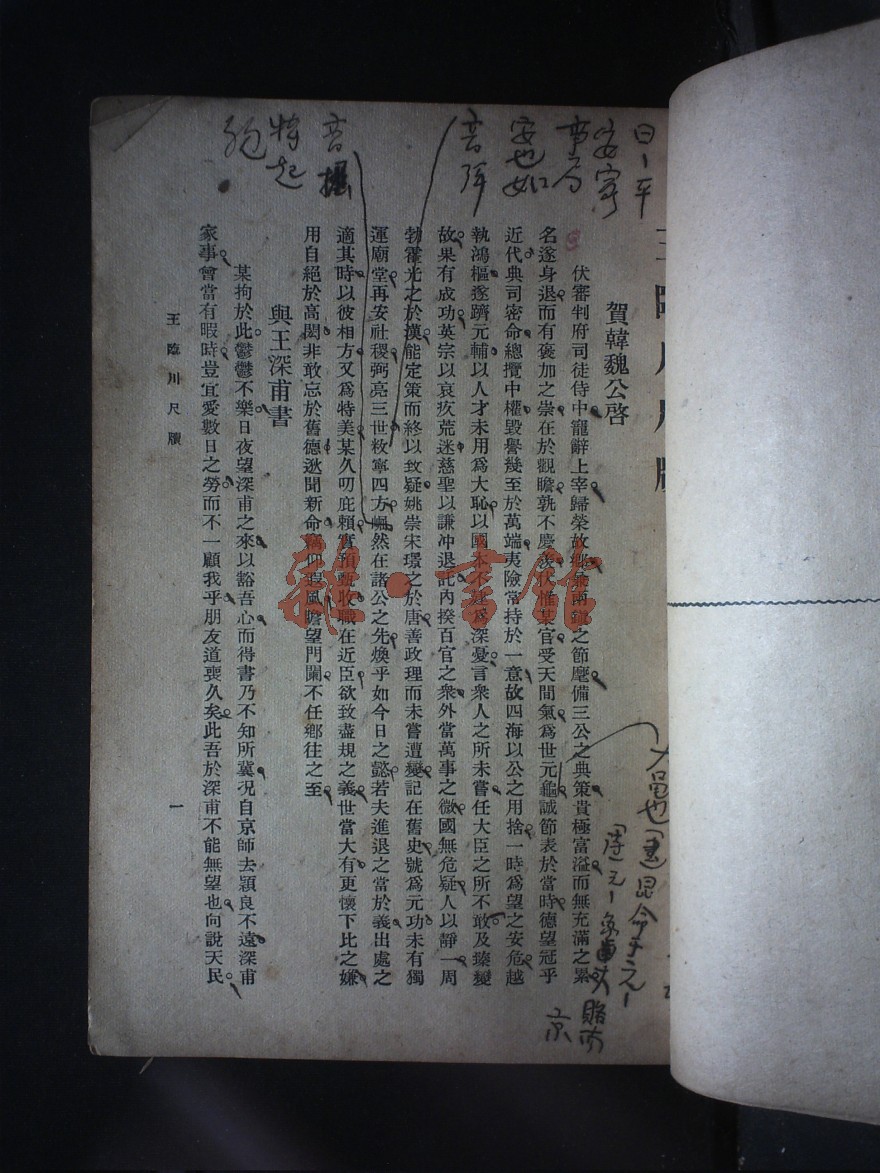 王臨川尺牘
賀韓魏公啓
伏審判府司徒侍中寵辭上宰歸榮故鄉兼兩鎮之節麾備三公之典策貴極富溢而無充滿之累
名遂身退而有褒加之崇在於觀瞻孰不慶羨伏惟某官受天間氣爲世元龜誠節表於當時德望冠乎
近代典司密命總攬中權毀譽幾至於萬端夷險常持於一意故四海以公之用捨一時爲望之安危越
執鴻樞遂躋元輔以人才未用爲大恥以國本不建爲深憂言衆人之所未嘗任大臣之所不敢及臻變
故果有成功英宗以哀疚荒迷慈聖以謙冲退託內揆百官之衆外當萬事之微國無危疑人以靜一周
勃霍光之於漢能定策而終以致疑姚崇宋璟之於唐善政理而未嘗遭變記在舊史號爲元功未有獨
運廟堂再安社稷弼亮三世敉寧四方崛然在諸公之先煥乎如今日之懿若夫進退之當於義出處之
適其時以彼相方又爲特美某久叨庇賴實預甄收職在近臣欲致盡規之義世當大有更懷下比之嫌
用自絕於高閎非敢忘於舊德逖聞新命竊仰遐風瞻望門闌不任鄉往之至
與王深甫書
某拘於此鬱鬱不樂日夜望深甫之來以豁吾心而得書乃不知所冀况自京師去穎良不遠深甫
家事會當有暇時豈宜愛數日之勞而不一顧我乎朋友道喪久矣此吾於深甫不能無望也向說天民
王臨川尺牘
一
安寧
安也如
特起
大𪚦也
雜·書館